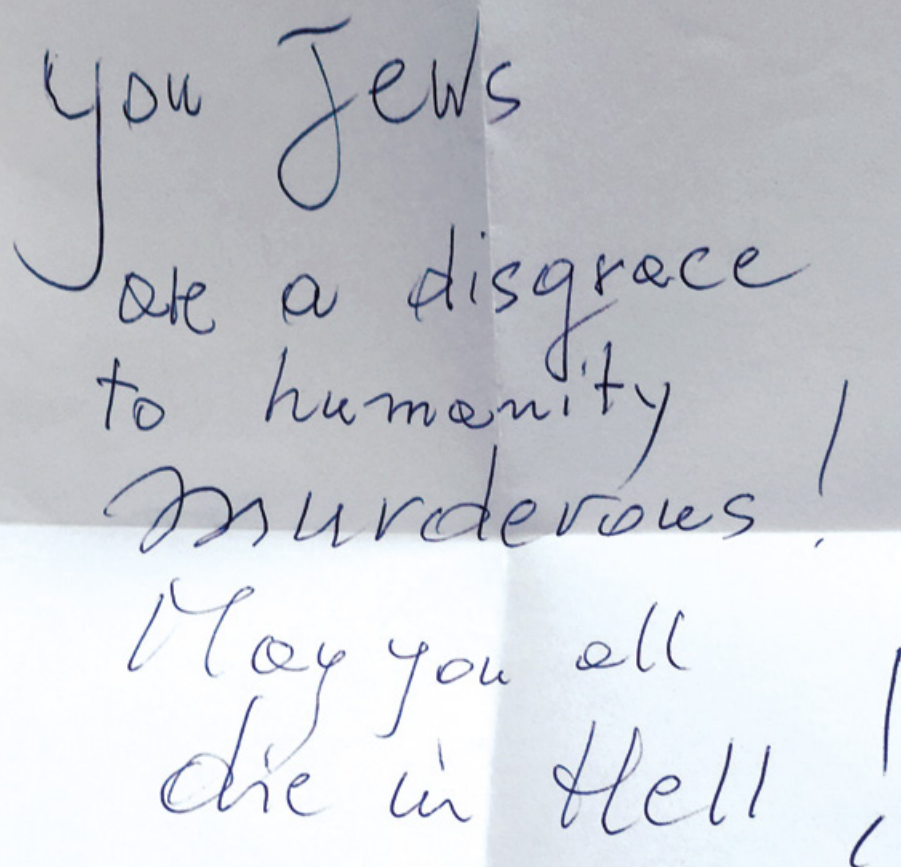 you Jews
are a disgrace
to humanity
murderous!
May you all
die in Hell!